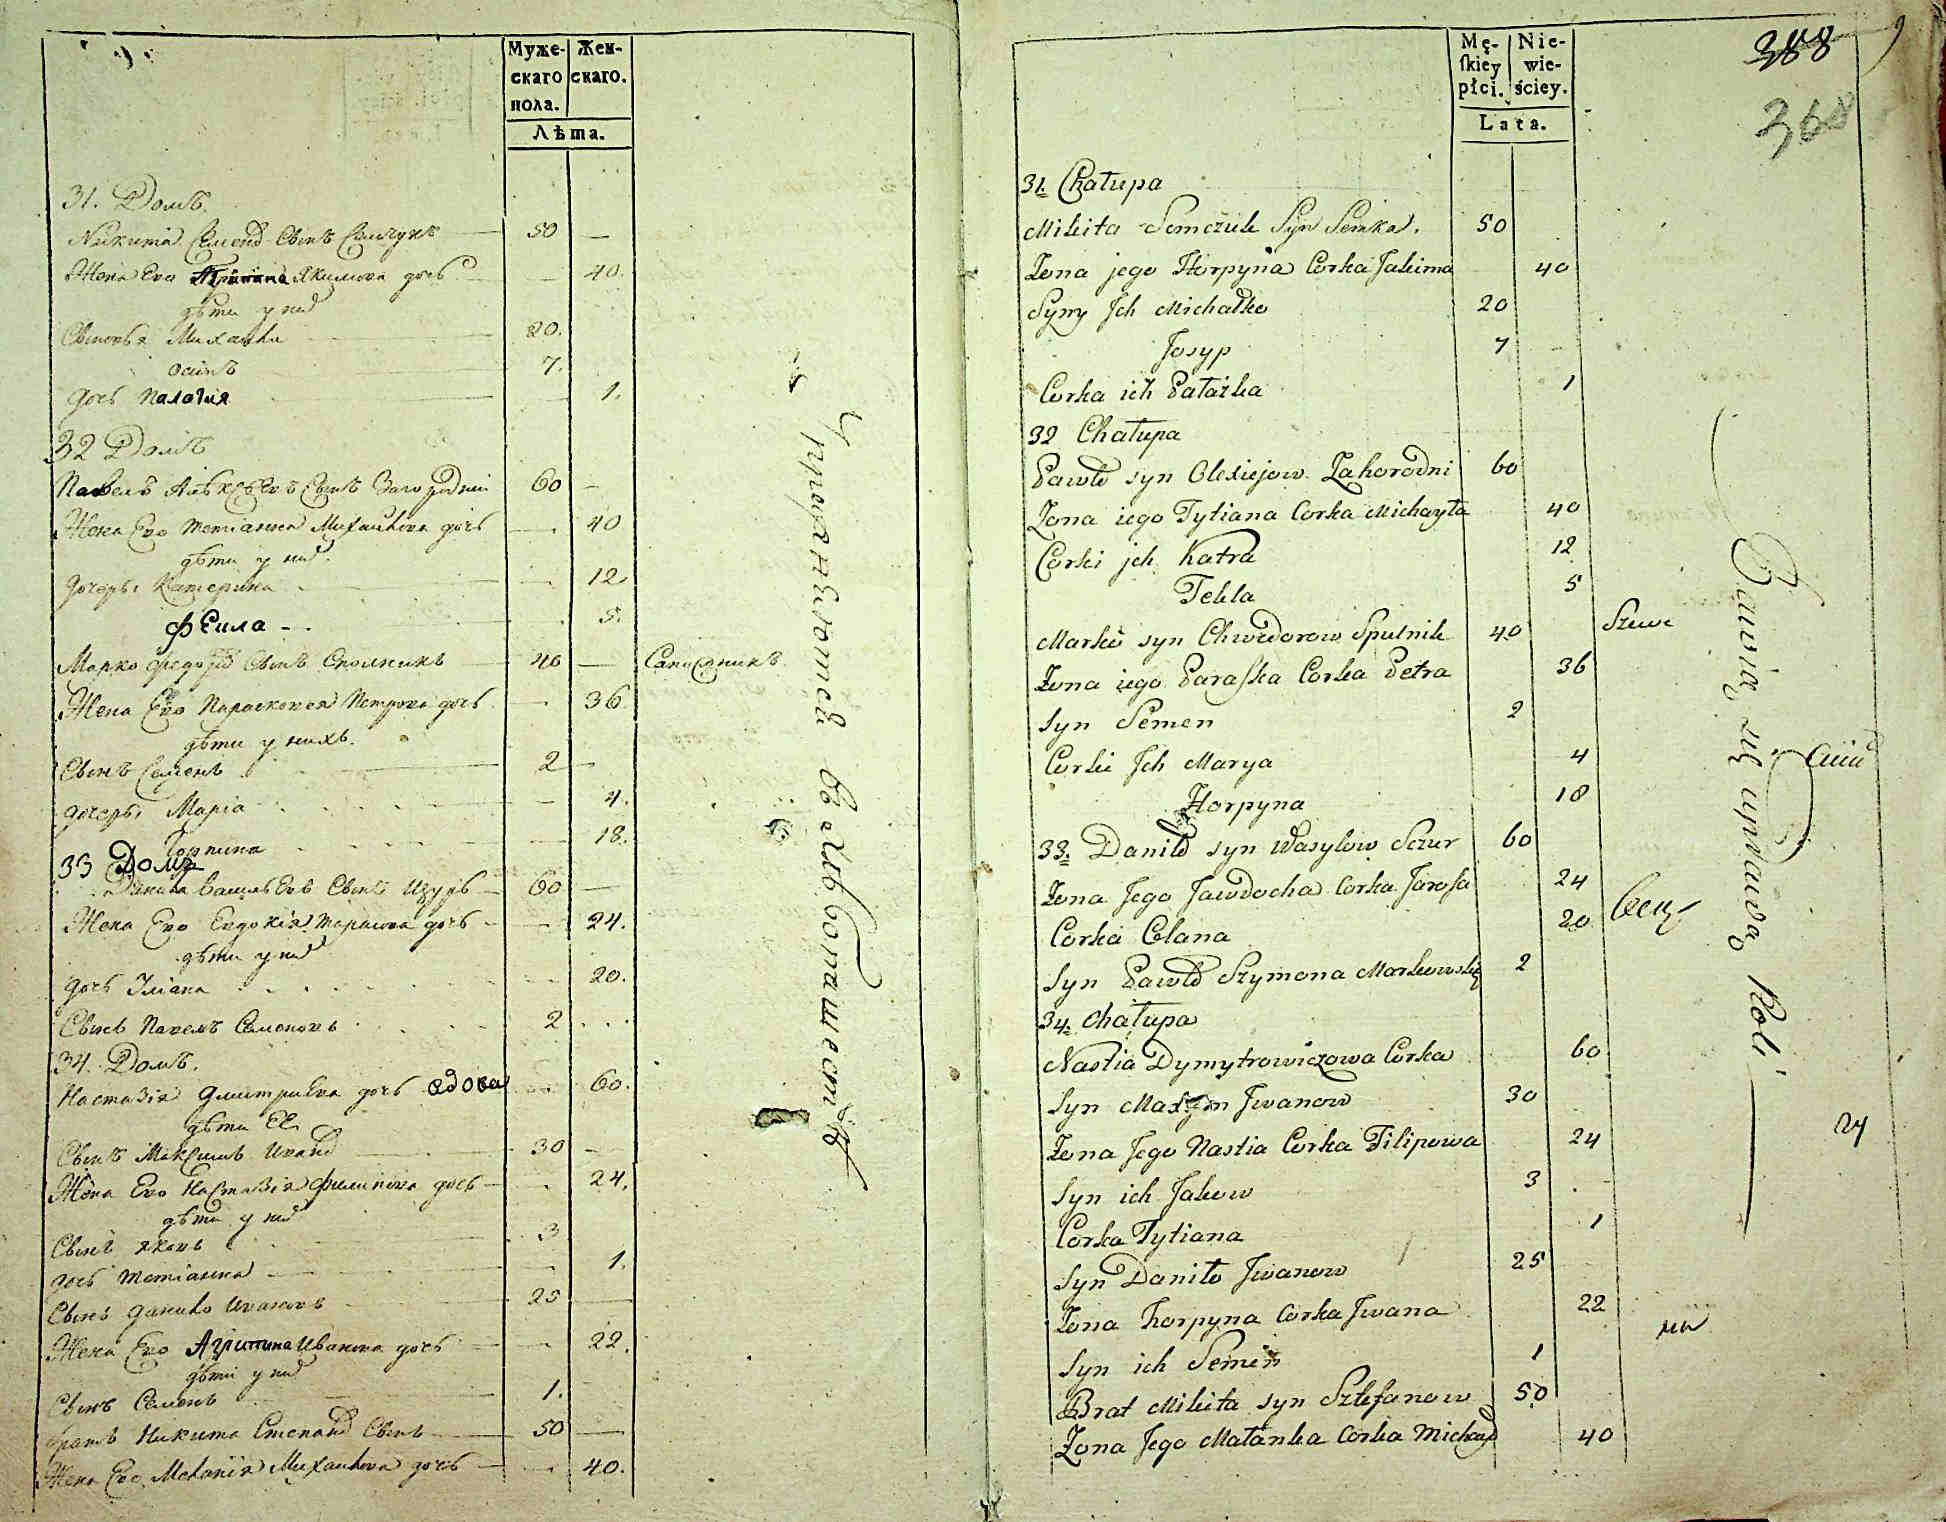 Муже-
скаго
пола.
Жен-
скаго.
Лѣта.
31. Домъ.
Никита Семенд Сынъ Семчукъ 50
Жена Его Агрипина Якимова дочь 40.
дѣти у них
Сыновья Михайла 20.
Осипъ 7.
дочь Палагия 1.
32 Домъ
Павелъ Алѣксѣевъ Сынъ Загородни 60
Жена Его Тетіанна Михайлова дочь 40
дѣти у них.
дочеры Катерина 12
Фекла 5.
Марко Федор Сынъ Спольникъ 40 Сапожникъ
Жена Его Парасковея Петрова дочь 36
дѣти у нихъ.
Сынъ Семенъ 2
дочеры Маріа 4.
Горпина 18.
33 Домъ
Данила Васильевъ Сынъ Щуръ 60
Жена Его Евдокія Тарасова дочь 24.
дѣти у них
дочь Уліана 20.
Сынъ Павелъ Семеновъ 2
34. Домъ.
Настазія Дмитриева дочь вдова 60.
дѣти Ее
Сынъ Максимъ Иванд 30
Жена Его Настазія Филипова дочь 24.
дѣти у них
Сынъ Яковъ 3
дочь Тетіанна 1.
Сынъ Данило Ивановъ 25
Жена Его Агрипина Иванова дочь 22.
дѣти у них
Сынъ Семенъ 1.
братъ Никита Степанд Сынъ 50
Жена Его Меланія Михайлова дочь 40.
Упражняются в хлебопашестве
Mę-
skiey
płci.
Nie-
wie-
ściey.
Lata.
388
368
31. Chałupa
Mikita Semczuk Syn Semka. 50
Zona jego Horpyna Corka Jakima 40
Syny Jch Michałko 20
Josyp 7
Corka ich Pałażka 1
32 Chałupa
Pawło syn Olexiejow Zahorodni 60
Zona iego Tytiana Corka Michayła 40
Corki jch Katra 12
Tekla 5
Marko syn Chwedorow Spulnik 40 Szewc
Zona iego Paraska Corka Petra 36
Syn Semen 2
Corki Jch Marya 4
Horpyna 18
33. Daniło syn Wasylow Sczur 60
Zona Jego Jawdocha Corka Jarosa 24
Corka Olana 20
Syn Pawło Szymona Markowski 2
34. Chałupa
Nastia Dymytrowiczowa Corka 60
Syn Maxym Jwanow 30
Zona Jego Nastia Corka Filipowa 24
Syn ich Jakow 3
Corka Tytiana 1
Syn Daniło Jwanow 25
Zona Horpyna Corka Jwana 22
Syn ich Semen 1
Brat Mikita syn Sztefanow 50
Zona Jego Małanka Corka Michay 40
Bawią się uprawą Roli
24